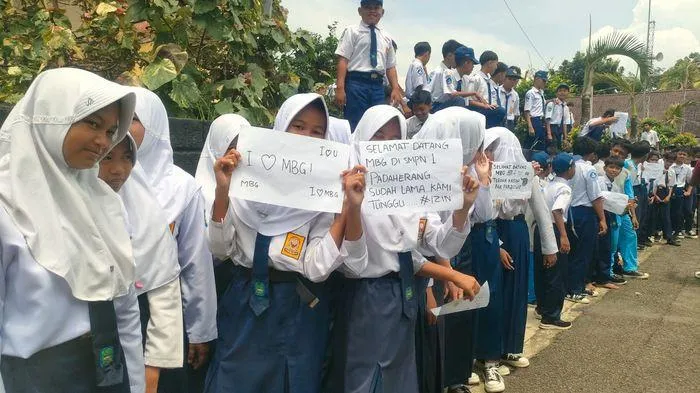 I ♡ MBG!
I ♡ U
MBG
I ♡ MBG
SELAMAT DATANG
MBG DI SMPN 1
PADAHERANG
SUDAH LAMA KAMI
TUNGGU #IZIN